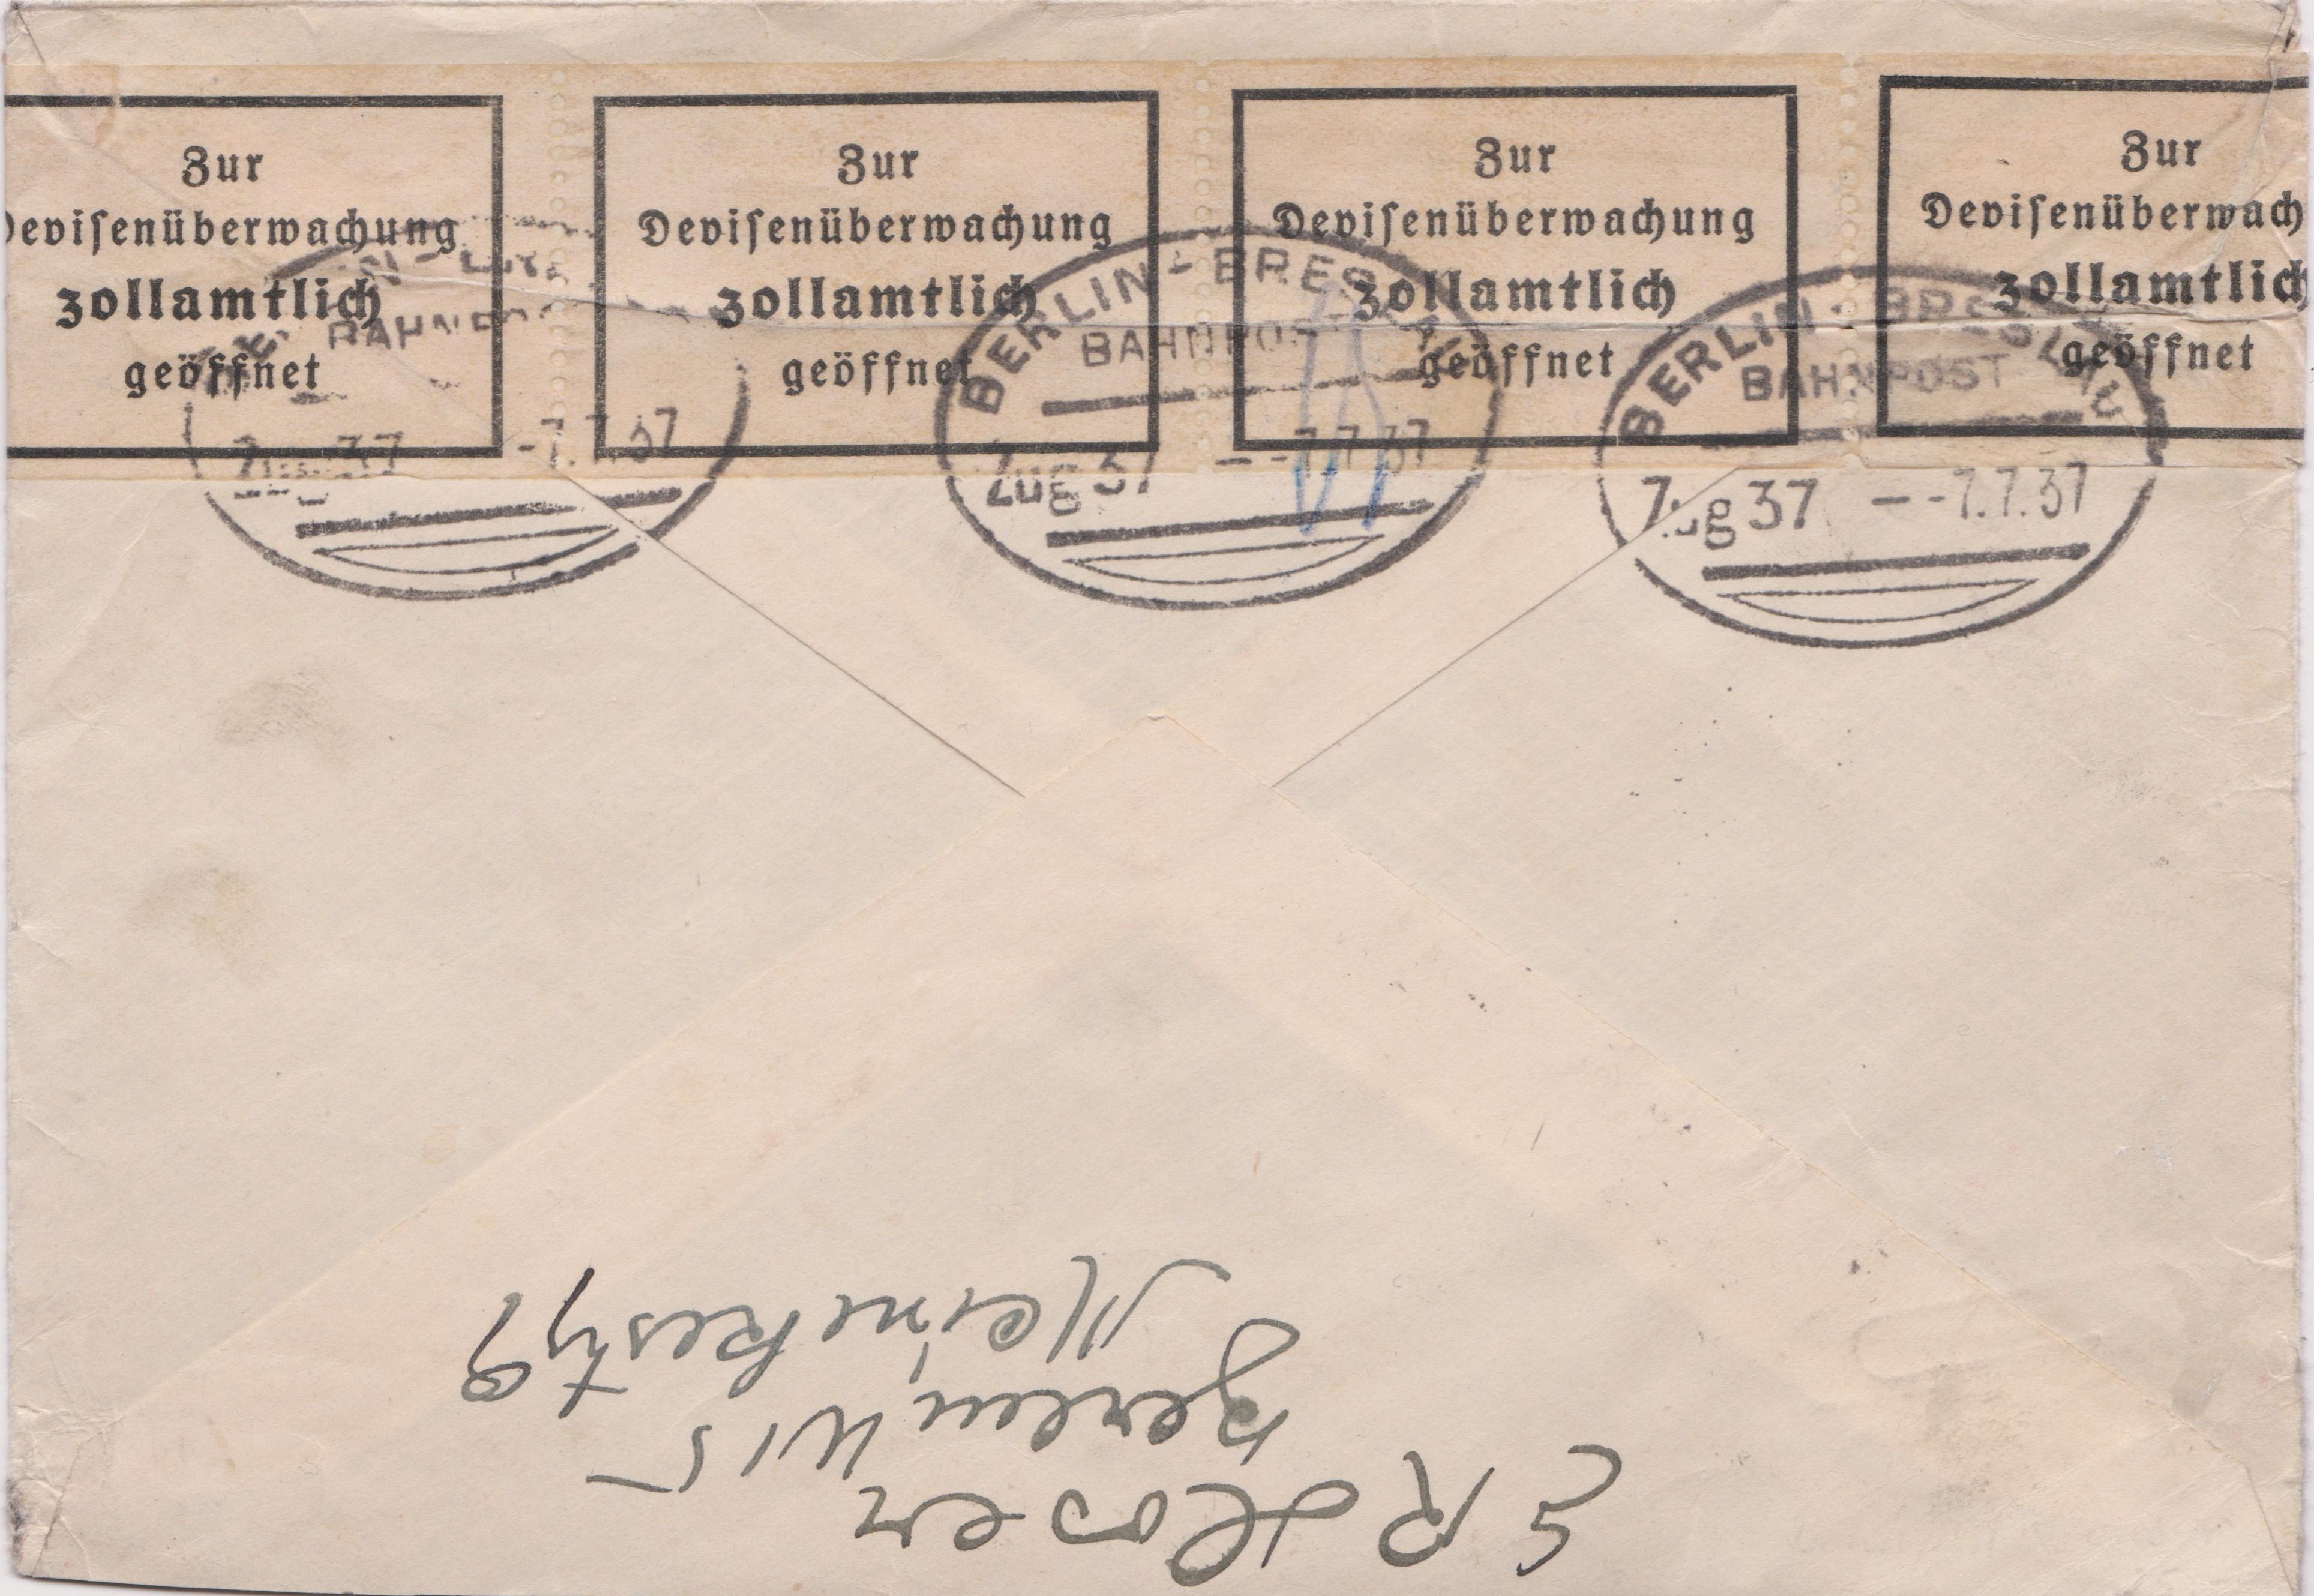 Zur
Devisenüberwachung
zollamtlich
geöffnet
Zur
Devisenüberwachung
zollamtlich
geöffnet
Zur
Devisenüberwachung
zollamtlich
geöffnet
Zur
Devisenüberwach
zollamtlich
geöffnet
BAHNPO
Zug 37 -7.7.37
BERLIN - BRESLAU
BAHNPOST
Zug 37 - -7.7.37
BERLIN - BRESLAU
BAHNPOST
Zug 37 - -7.7.37
E R
Berlin W 15
Meinekestr 9